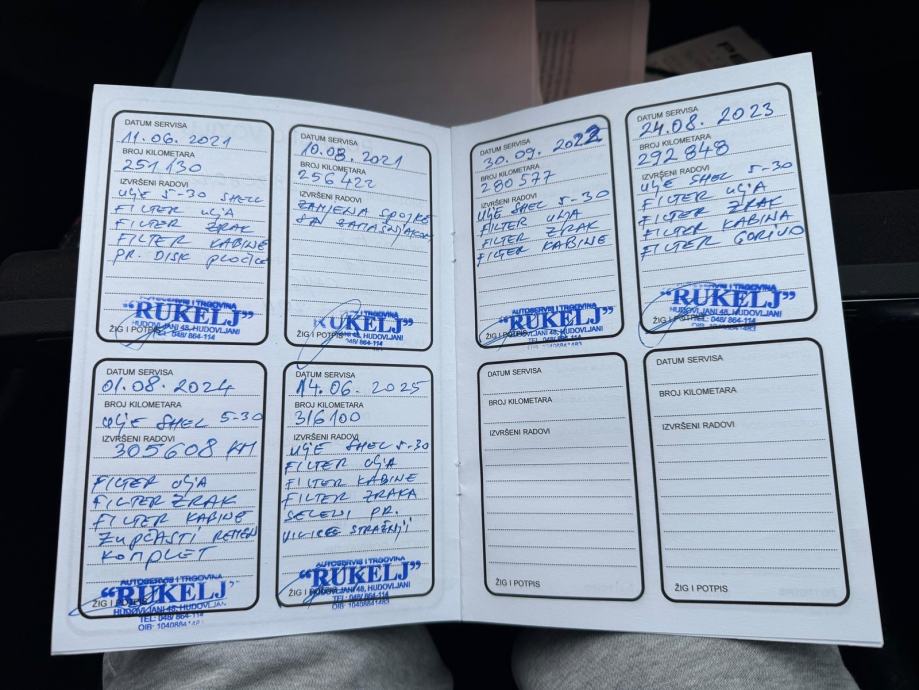 DATUM SERVISA
11.06.2021
BROJ KILOMETARA
251130
IZVRŠENI RADOVI
ULJE 5-30 SHELL
FILTER ULJA
FILTER ZRAK
FILTER KABINE
PR. DISK PLOČICE
AUTOSERVIS I TRGOVINA
"RUKELJ"
HUDOVLJANI 48, HUDOVLJANI
ŽIG I POTPIS
TEL: 048/ 864-114
DATUM SERVISA
10.08.2021
BROJ KILOMETARA
256422
IZVRŠENI RADOVI
ZAMJENA SPOJKE
SA ZAMAŠNJAKOM
AUTOSERVIS I TRGOVINA
RUKELJ"
HUDOVLJANI 48, HUDOVLJANI
ŽIG I POTPIS
048/ 864-114
DATUM SERVISA
30.09.2022
BROJ KILOMETARA
280577
IZVRŠENI RADOVI
ULJE SHEL 5-30
FILTER ULJA
FILTER ZRAK
FILTER KABINE
AUTOSERVIS I TRGOVINA
"RUKELJ"
HUDOVLJANI 48, HUDOVLJANI
ŽIG I POTPIS
TEL: 048/ 864-114
DATUM SERVISA
24.08.2023
BROJ KILOMETARA
292848
IZVRŠENI RADOVI
ULJE SHEL 5-30
FILTER ULJA
FILTER ZRAK
FILTER KABINA
FILTER GORIVO
"RUKELJ"
HUDOVLJANI 48, HUDOVLJANI
ŽIG I POTPIS
TEL: 048/ 864-114
DATUM SERVISA
01.08.2024
BROJ KILOMETARA
ULJE SHEL 5-30
IZVRŠENI RADOVI
305608 KM
FILTER ULJA
FILTER ZRAK
FILTER KABINE
ZUPČASTI REMEN
KOMPLET
AUTOSERVIS I TRGOVINA
"RUKELJ"
ŽIG I POTPIS
HUDOVLJANI 48, HUDOVLJANI
TEL: 048/ 864-114
DATUM SERVISA
14.06.2025
BROJ KILOMETARA
316100
IZVRŠENI RADOVI
ULJE SHEL 5-30
FILTER ULJA
FILTER KABINE
FILTER ZRAKA
SELENI PR.
VILICE STRAŽNJI
AUTOSERVIS I TRGOVINA
"RUKELJ"
ŽIG I POTPIS
HUDOVLJANI 48, HUDOVLJANI
TEL: 048/ 864-114
DATUM SERVISA
BROJ KILOMETARA
IZVRŠENI RADOVI
ŽIG I POTPIS
DATUM SERVISA
BROJ KILOMETARA
IZVRŠENI RADOVI
ŽIG I POTPIS